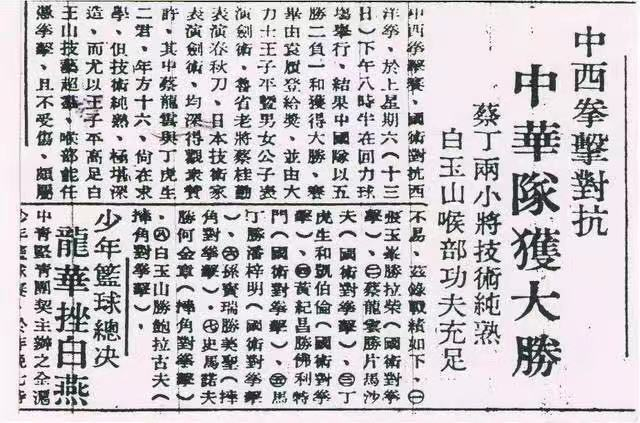 中西拳擊對抗
中華隊獲大勝
蔡丁兩小將技術純熟
白玉山喉部功夫充足
中西拳擊賽、國術對抗西
洋拳、於上星期六(十三
日)下午八時半在回力球
場舉行、結果中國隊以五
勝二負一和獲得大勝、賽
畢由袁履登給獎、並由大
力士王子平暨男女公子表
演劍術、魯省老將蔡桂勤
表演春秋刀、日本技術家
表演劍術、均深得觀衆贊
許、其中蔡龍雲與丁虎生
二君、年方十六、尚在求
學、但技術純熟、極堪深
造、而尤以王子平高足白
玉山技藝超羣、喉部能任
憑拳擊、且不受傷、頗屬
不易、茲錄戰績如下、㊀
張玉勝拉柴(國術對拳
擊)、㊁蔡龍雲勝片馬沙
夫(國術對拳擊)、㊂丁
虎生和劉伯倫(國術對拳
擊)、㊃黃紀昌勝佛利特
門(國術對拳擊)、㊄馬
丁勝潘梓明(國術對拳擊
)、㊅孫寶瑞勝美聖(摔
角對拳擊)、㊆史馬諾夫
勝何金章(摔角對拳擊)
、㊇白玉山勝鮑拉古夫(
摔角對拳擊)、
少年籃球總决
龍華挫白燕
中青堅青團契主辦之全滬